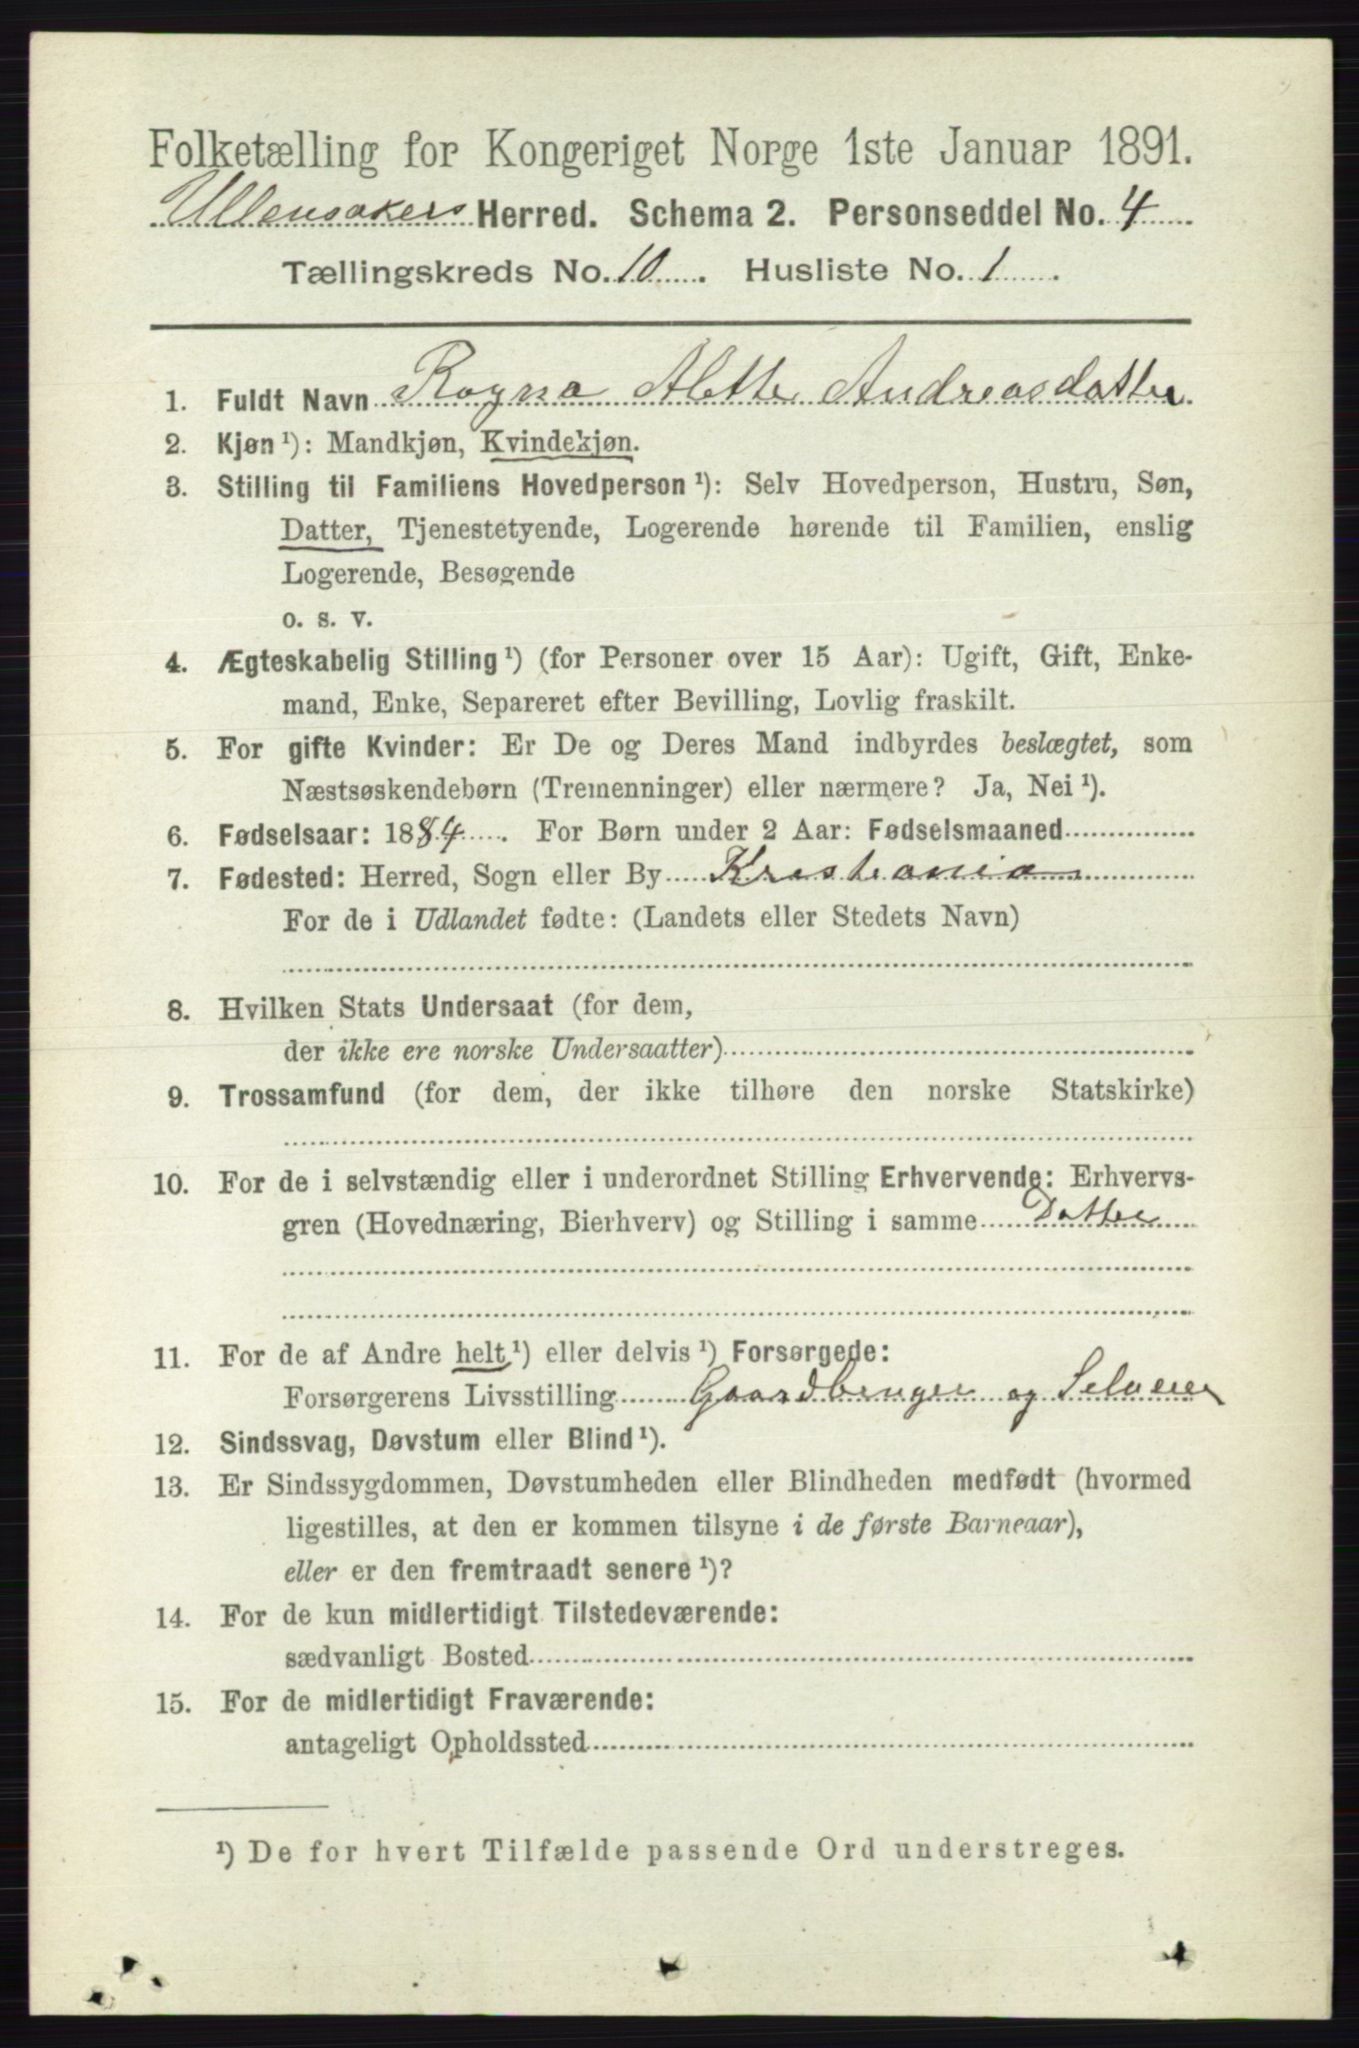 Folketælling for Kongeriget Norge 1ste Januar 1891.
Ullensakers Herred. Schema 2. Personseddel No. 4
Tællingskreds No. 10. Husliste No. 1.
1. Fuldt Navn Ragna Alette Andreasdatter
2. Kjøn ¹): Mandkjøn, Kvindekjøn.
3. Stilling til Familiens Hovedperson ¹): Selv Hovedperson, Hustru, Søn,
Datter, Tjenestetyende, Logerende hørende til Familien, enslig
Logerende, Besøgende
o. s. v.
4. Ægteskabelig Stilling ¹) (for Personer over 15 Aar): Ugift, Gift, Enke-
mand, Enke, Separeret efter Bevilling, Lovlig fraskilt.
5. For gifte Kvinder: Er De og Deres Mand indbyrdes beslægtet, som
Næstsøskendebørn (Tremenninger) eller nærmere? Ja, Nei ¹).
6. Fødselsaar: 1884. For Børn under 2 Aar: Fødselsmaaned
7. Fødested: Herred, Sogn eller By Kristiania
For de i Udlandet fødte: (Landets eller Stedets Navn)
8. Hvilken Stats Undersaat (for dem,
der ikke ere norske Undersaatter)
9. Trossamfund (for dem, der ikke tilhøre den norske Statskirke)
10. For de i selvstændig eller i underordnet Stilling Erhvervende: Erhvervs-
gren (Hovednæring, Bierhverv) og Stilling i samme Datter
11. For de af Andre helt ¹) eller delvis ¹) Forsørgede:
Forsørgerens Livsstilling Gaardbruger og Selveier
12. Sindssvag, Døvstum eller Blind ¹).
13. Er Sindssygdommen, Døvstumheden eller Blindheden medfødt (hvormed
ligestilles, at den er kommen tilsyne i de første Barneaar),
eller er den fremtraadt senere ¹)?
14. For de kun midlertidigt Tilstedeværende:
sædvanligt Bosted
15. For de midlertidigt Fraværende:
antageligt Opholdssted
¹) De for hvert Tilfælde passende Ord understreges.